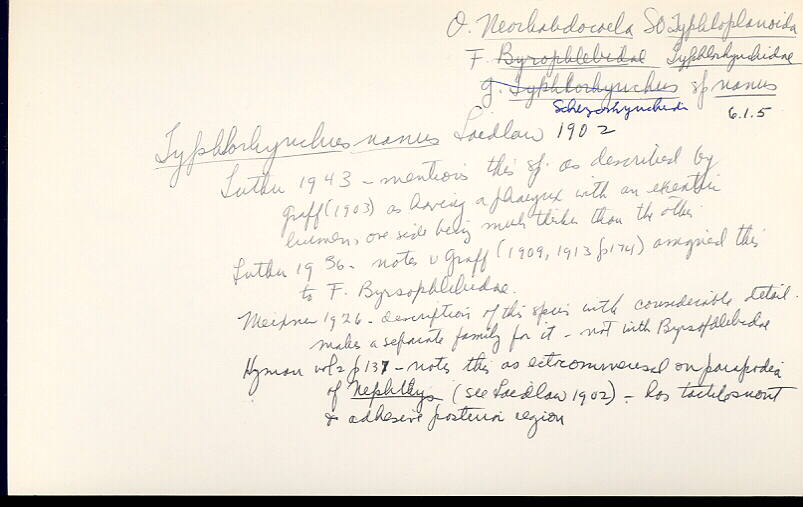 O. Neorhabdocoela SO Typhloplanoida
F. Byrsophlebidae Typhlorhynchidae
g. Typhlorhynchus sp nanus
Schizorhynchidi 6.1.5
Typhlorhynchus nanus Laidlaw 1902
Luther 1943 - mentions this sp. as described by
Graff (1903) as having a pharynx with an excentric
lumen, one side being much thicker than the other
Luther 1936 - notes v Graff (1909, 1913 p 174) assigned this
to F. Byrsophlebidae.
Meixner 1926 - description of this species with considerable detail.
makes a separate family for it - not with Byrsophlebidae
Hyman vol 2 p 137 - notes this as ectocommensal on parapodia
of Nephthys (see Laidlaw 1902) - has tactile snout
& adhesive posterior region